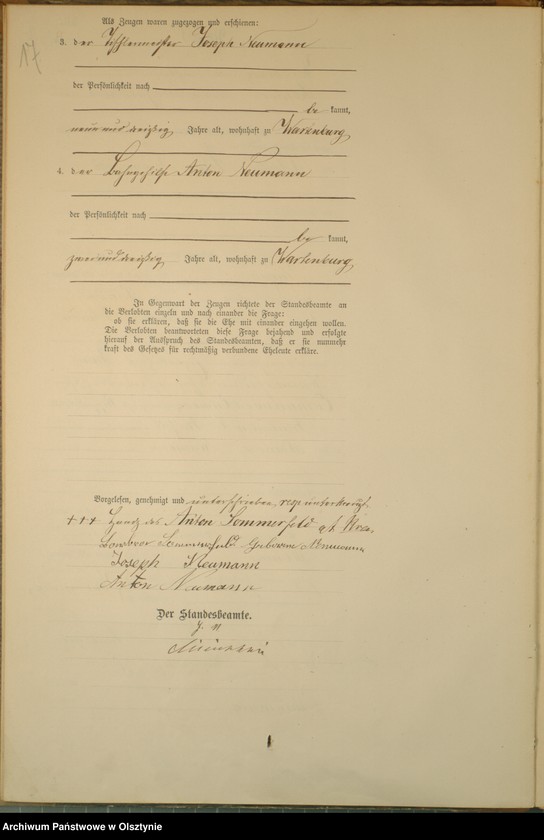 17
Als Zeugen waren zugezogen und erschienen:
3. der Tischlermeister Joseph Neumann
der Persönlichkeit nach
be kannt,
neun und dreißig Jahre alt, wohnhaft zu Wartenburg
4. der Anton Neumann
der Persönlichkeit nach
be kannt,
zwei und dreißig Jahre alt, wohnhaft zu Wartenburg
In Gegenwart der Zeugen richtete der Standesbeamte an
die Verlobten einzeln und nach einander die Frage:
ob sie erklären, daß sie die Ehe mit einander eingehen wollen.
Die Verlobten beantworteten diese Frage bejahend und erfolgte
hierauf der Ausspruch des Standesbeamten, daß er sie nunmehr
kraft des Gesetzes für rechtmäßig verbundene Eheleute erkläre.
Vorgelesen, genehmigt und unterschrieben, resp unterkreuzt.
+++ Handz des Anton Sommerfeld
Sommerfeld geborene Neumann
Joseph Neumann
Anton Neumann
Der Standesbeamte.
Archiwum Państwowe w Olsztynie